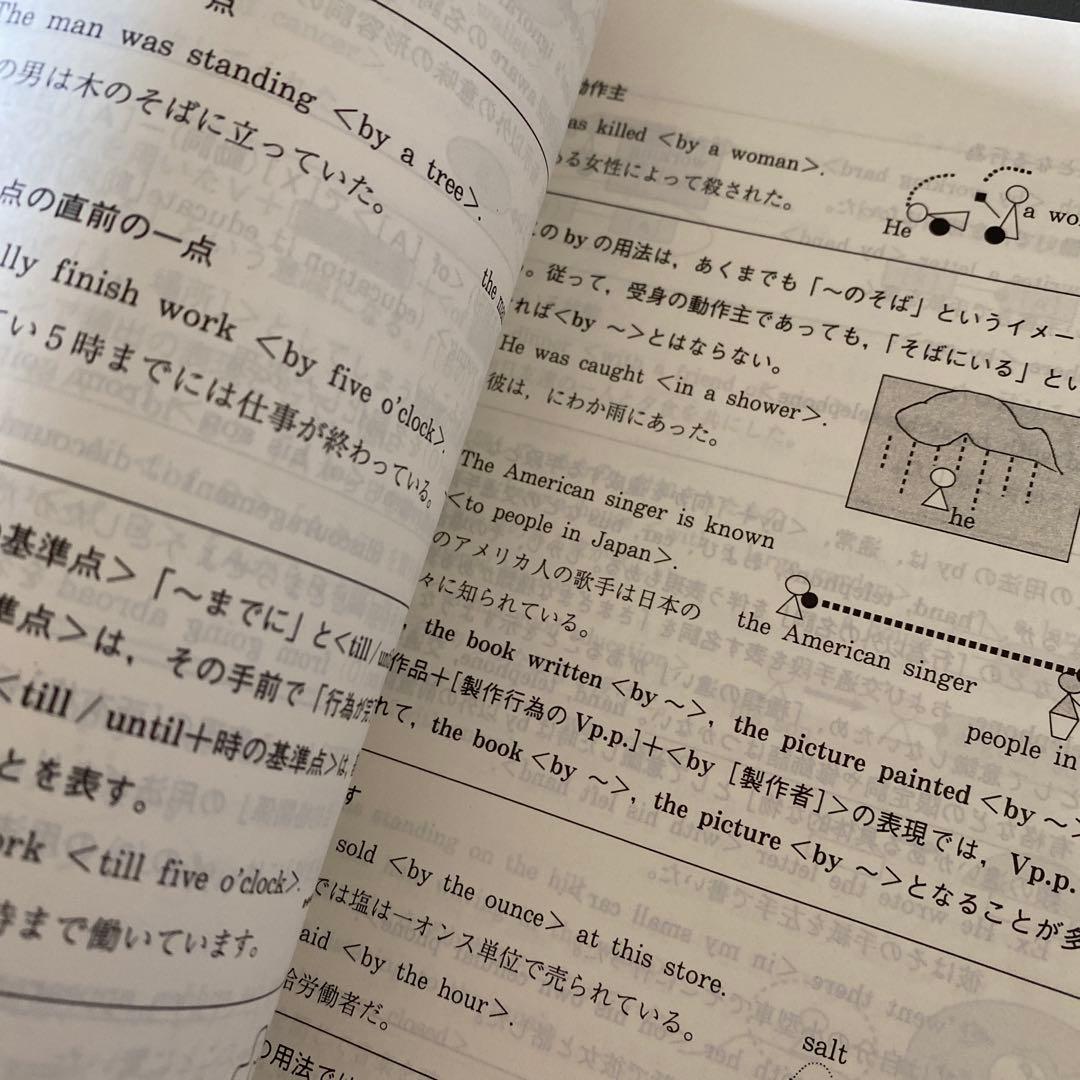 点
The man was standing ＜by a tree＞.
の男は木のそばに立っていた。
点の直前の一点
lly finish work ＜by five o'clock＞.
い５時までには仕事が終わっている。
基準点＞「～までに」と＜till/un
準点＞は，その手前で「行為が完
＜till / until＋時の基準点＞は，
とを表す。
ork ＜till five o'clock＞.
時まで働いています。
the
動作主
as killed ＜by a woman＞.
ある女性によって殺された。
He
a wo
このbyの用法は，あくまでも「～のそば」というイメー
。従って，受身の動作主であっても，「そばにいる」とい
ければ＜by ～＞とはならない。
He was caught ＜in a shower＞.
彼は，にわか雨にあった。
he
The American singer is known
＜to people in Japan＞.
のアメリカ人の歌手は日本の
々に知られている。
the American singer
people in
, the book written ＜by ～＞, the picture painted ＜by ～＞
作品＋[製作行為のVp.p.]＋＜by [製作者]＞の表現では，Vp.p.
れて，the book ＜by ～＞, the picture ＜by ～＞となることが多
す
sold ＜by the ounce＞ at this store.
では塩は一オンス単位で売られている。
aid ＜by the hour＞.
給労働者だ。
salt
の用法では